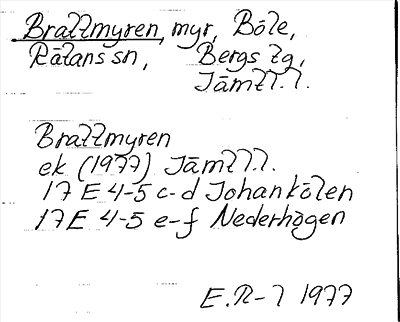 Brattmyren, myr, Böle,
Rätans sn, Bergs tg,
Jämtl. l.
Brattmyren
ek (1977) Jämtl l.
17 E 4-5 c-d Johankölen
17 E 4-5 e-f Nederhögen
E. R-l 1977